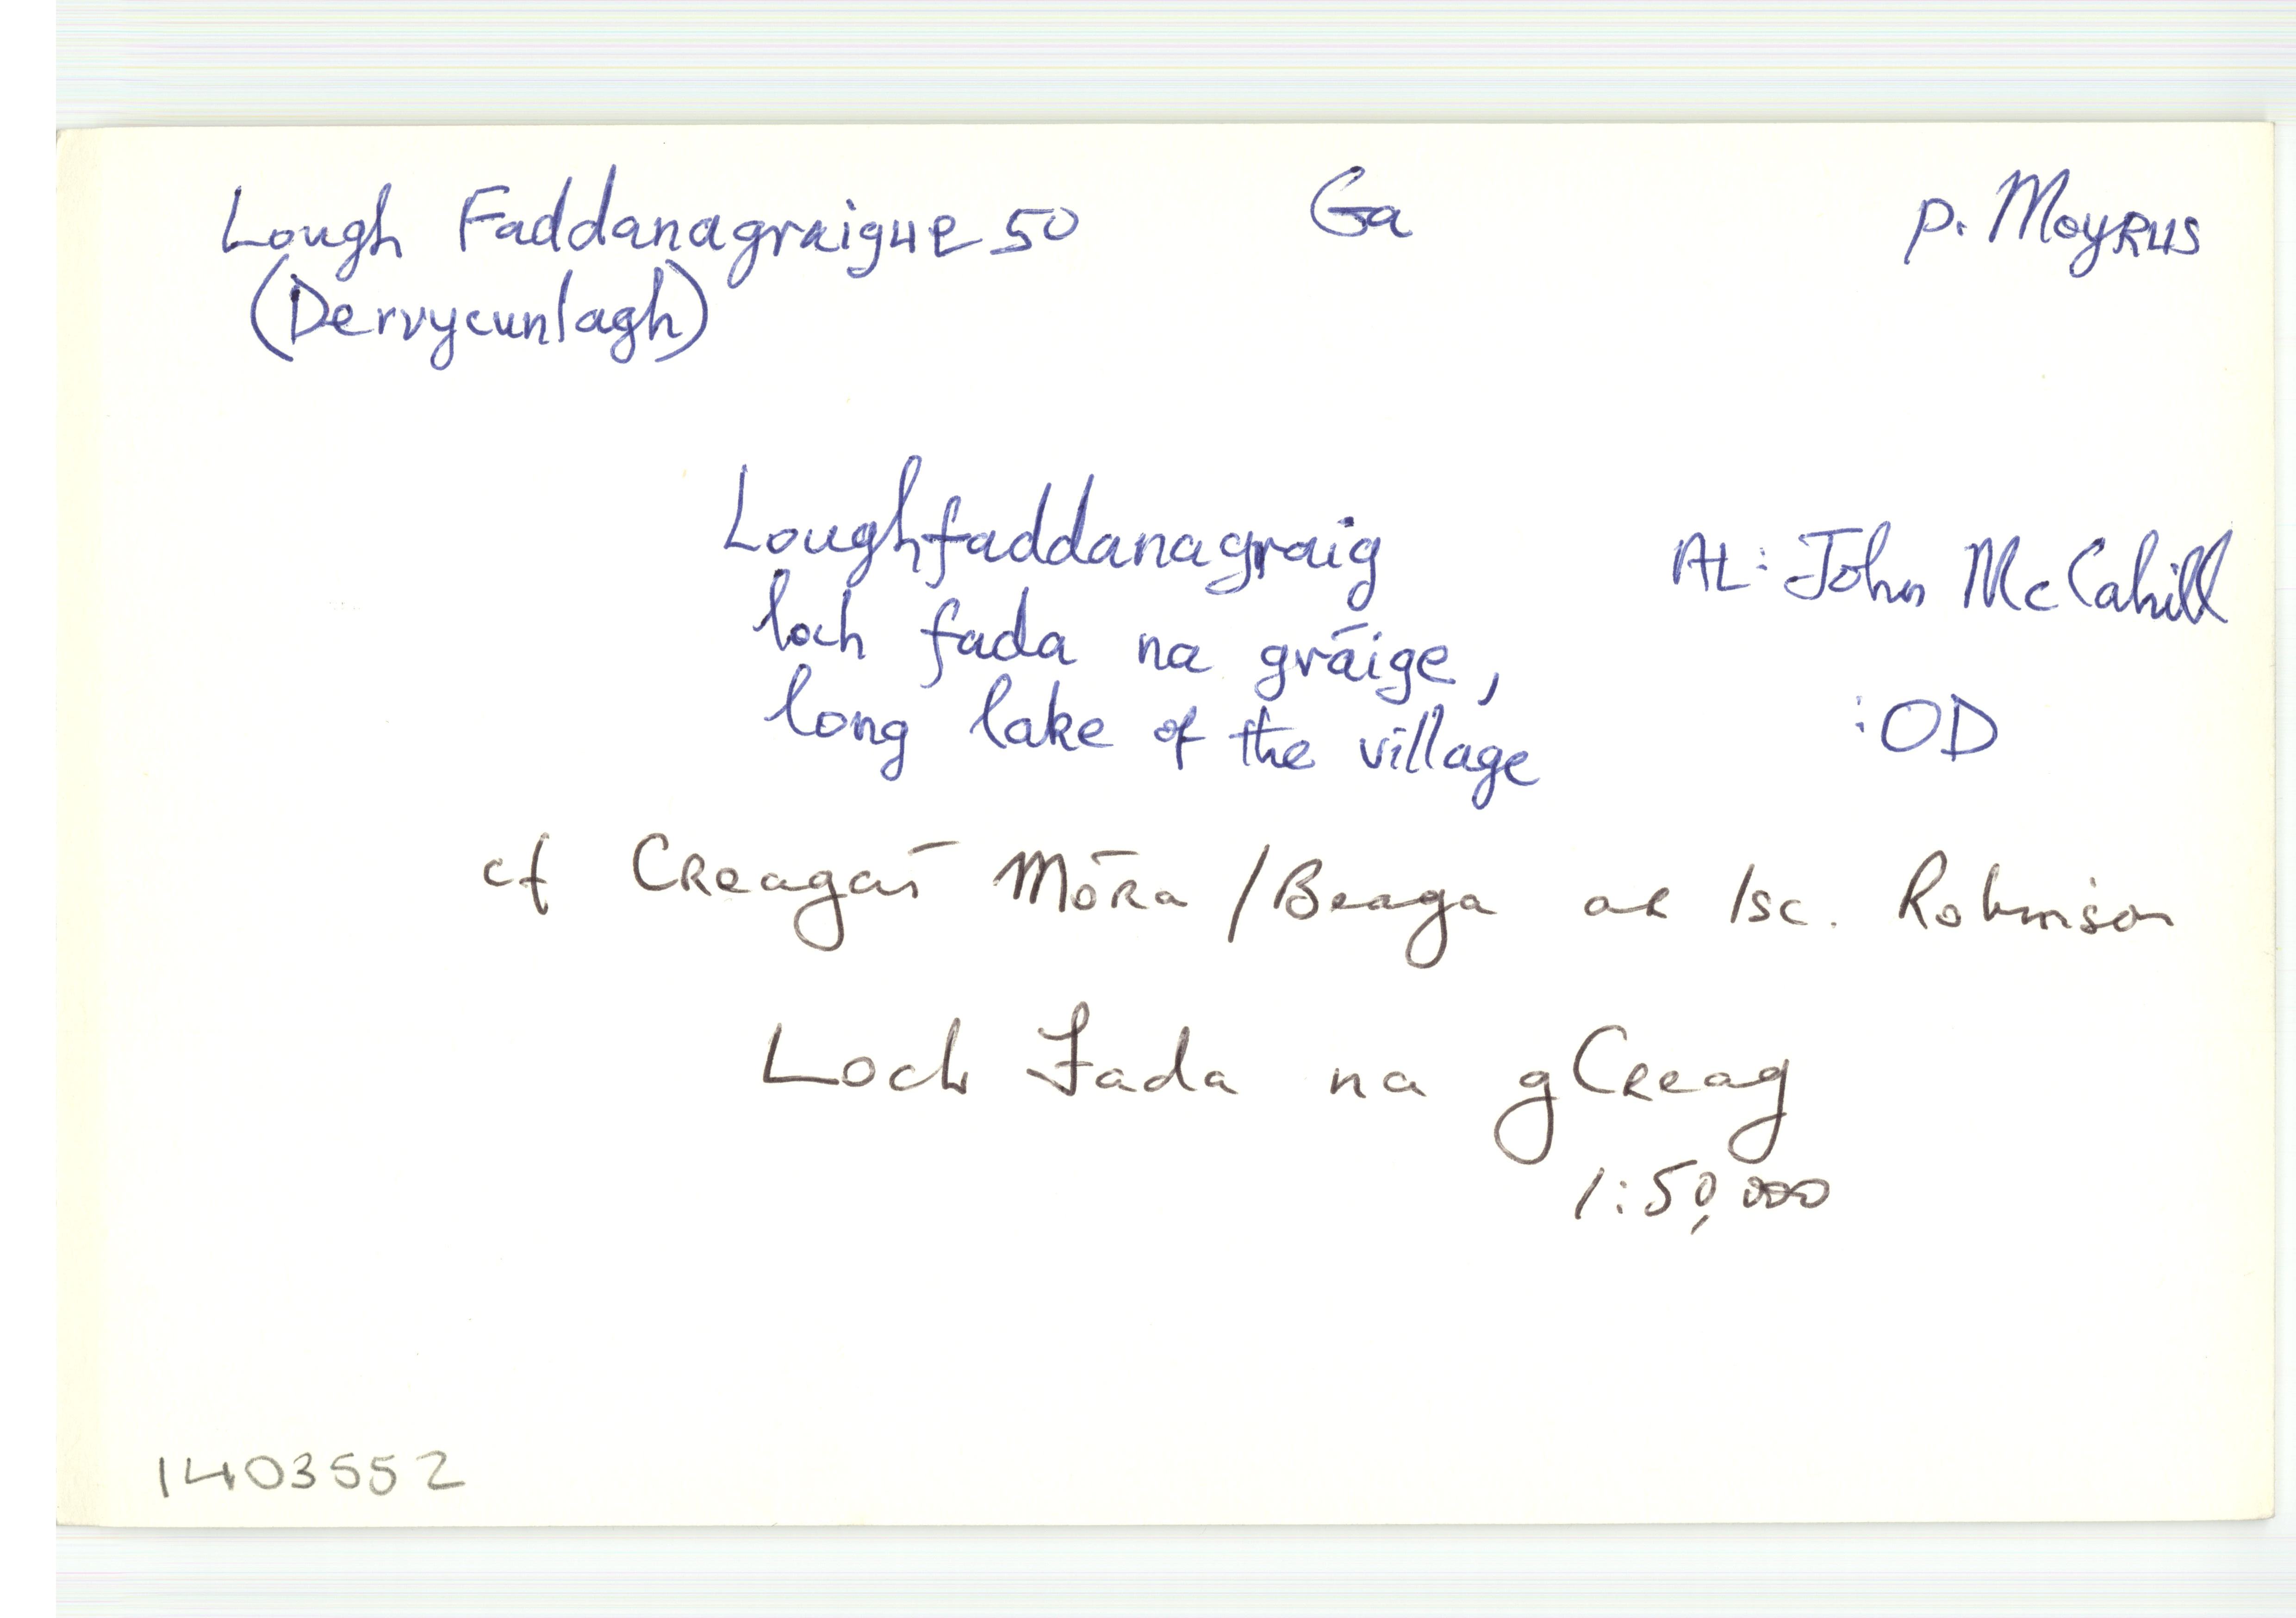 Lough Faddanagraigue 50 Ga p. Moyrus
(Dervycunlagh)
Loughfaddanagraig AL: John McCahill
loch fada na gráige,
long lake of the village :OD
cf Creagáin Móra / Beaga ar lsc. Robinson
Loch Fada na gCreag
1:50,000
1403552